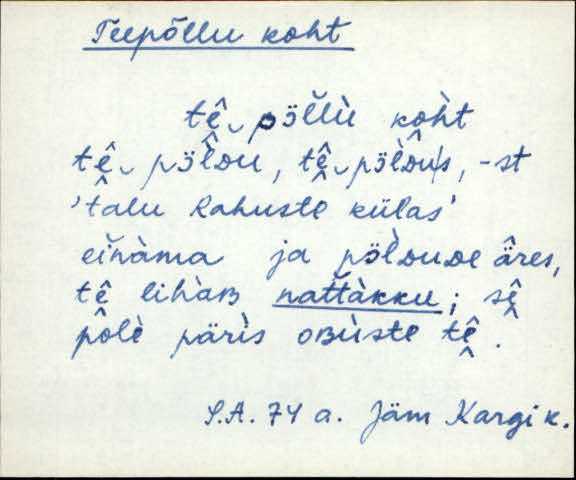 Teepõllu koht
tê‿pöl̆lù kòht
tê̬‿pöl̀ᴅu, tê̬‿pöl̀ᴅus, -st
'talu Kahuste külas'
eìnàma ja pöl̀ᴅuᴅe âres,
tê lihàʙ natt̆àkku; sê̬
pôlè pärìs oʙùste tê̬.
S.A. 74 a. Jäm Kargi k.